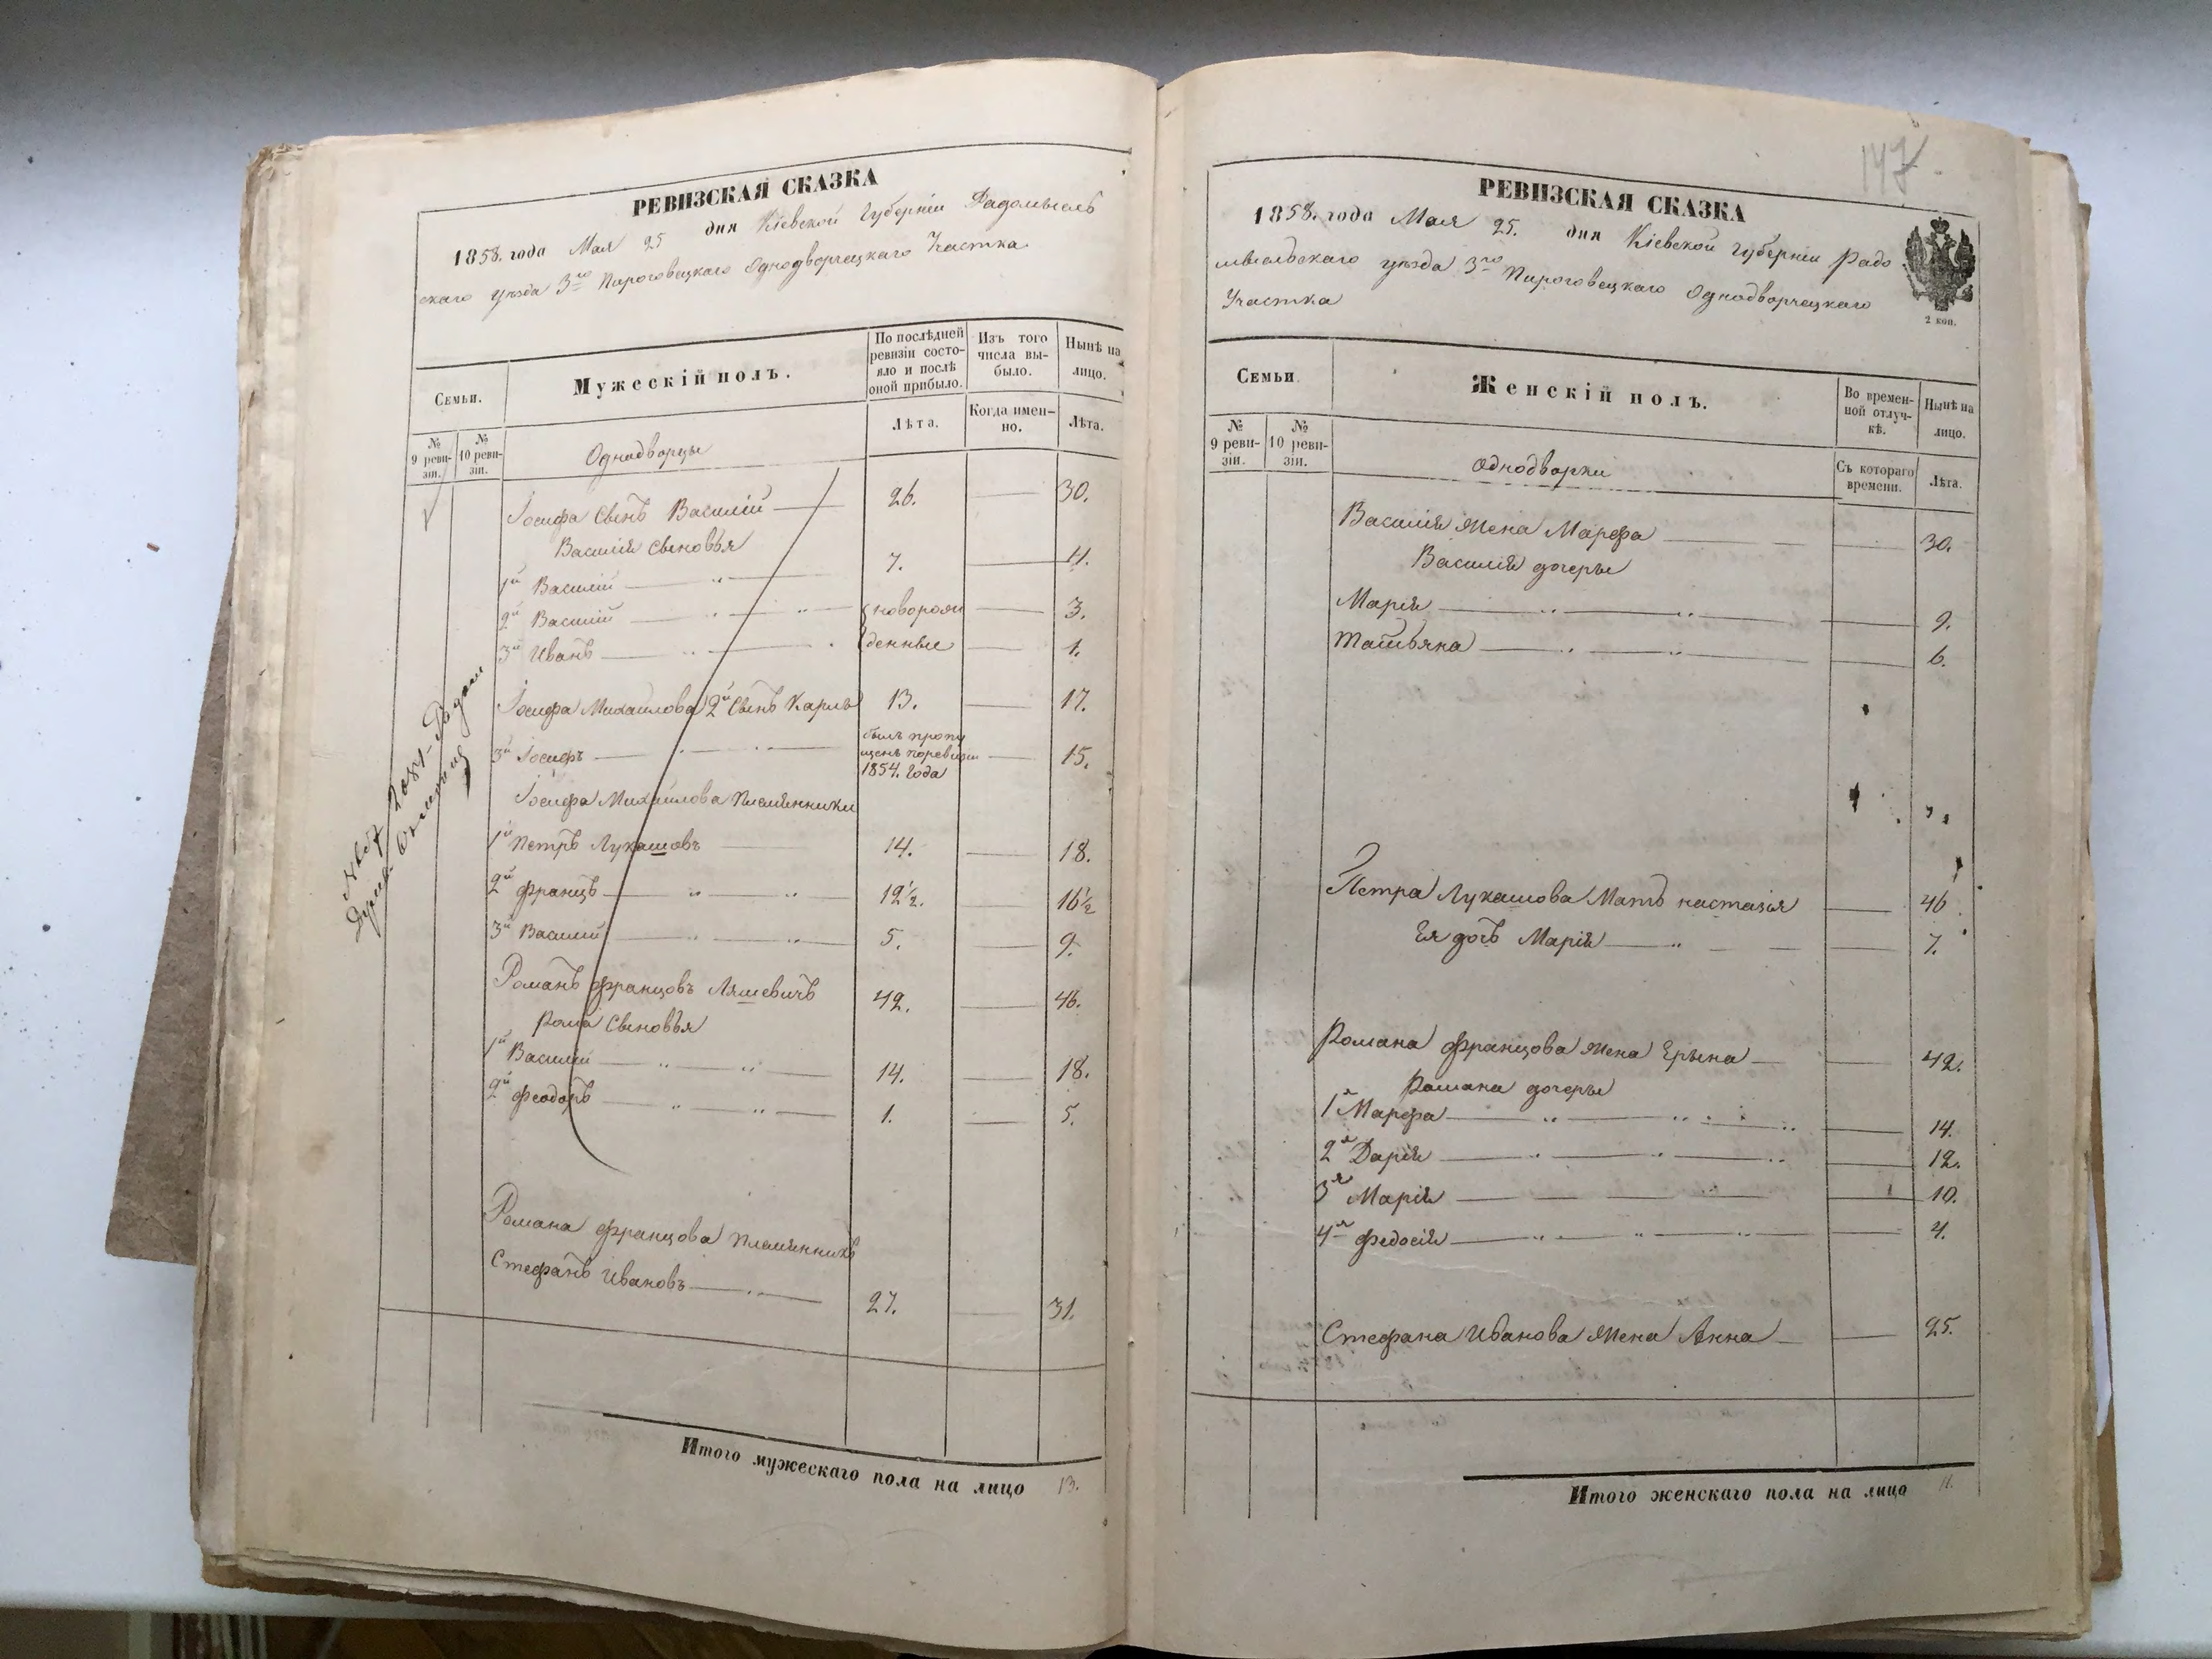 РЕВИЗСКАЯ СКАЗКА
1858. года Мая 25 дня Кіевской Губерніи Радомысль
скаго уѣзда 3го Пироговецкаго Однодворчецкаго Участка
Семьи.
Мужескій полъ.
По послѣдней ревизіи состояло и послѣ оной прибыло.
Изъ того числа выбыло.
Нынѣ на лицо.
№ 9 ревизіи.
№ 10 ревизіи.
Однодворцы
Лѣта.
Когда именно.
Лѣта.
Іосифа Сынъ Василій 26. 30.
Василія Сыновья
1й Василій 7. 11.
2й Василій новорож 3.
3й Иванъ денные 1.
Іосифа Михайлова 2й Сынъ Карлъ 13. 17.
3й Іосифъ былъ пропу
щенъ поревизіи 15.
1854. Года
Іосифа Михайлова Племянники
1й Петръ Лукашовъ 14. 18.
2й Францъ 12½. 16½
3й Василій 5. 9.
Романъ Францовъ Ляшевичъ 42. 46.
Рома Сыновья
1й Василій 14. 18.
2й Феодоръ 1. 5.
Романа Францова Племянникъ
Стефанъ Ивановъ 27. 31.
Итого мужескаго пола на лицо 13.
147
РЕВИЗСКАЯ СКАЗКА
1858. года Мая 25. дня Кіевской Губерніи Радо
мысльскаго уѣзда 3го Пироговецкаго Однодворчецкаго
Участка
2 коп.
Семьи
Женскій полъ.
Во временной отлучкѣ.
Нынѣ на лицо.
№ 9 ревизіи.
№ 10 ревизіи.
Однодворки
Съ котораго времени.
Лѣта.
Василія Жена Марфа 30.
Василія дочеры
Марія 9.
Татьяна 6.
Петра Лукашова Мать настазія 46.
Ея дочь Марія 7.
Романа Францова Жена Ерына 42.
Романа дочеры
1я Марфа 14.
2я Дарія 12.
3я Марія 10.
4я Федосія 4.
Стефана Иванова Жена Анна 25.
Итого женскаго пола на лицо 11.